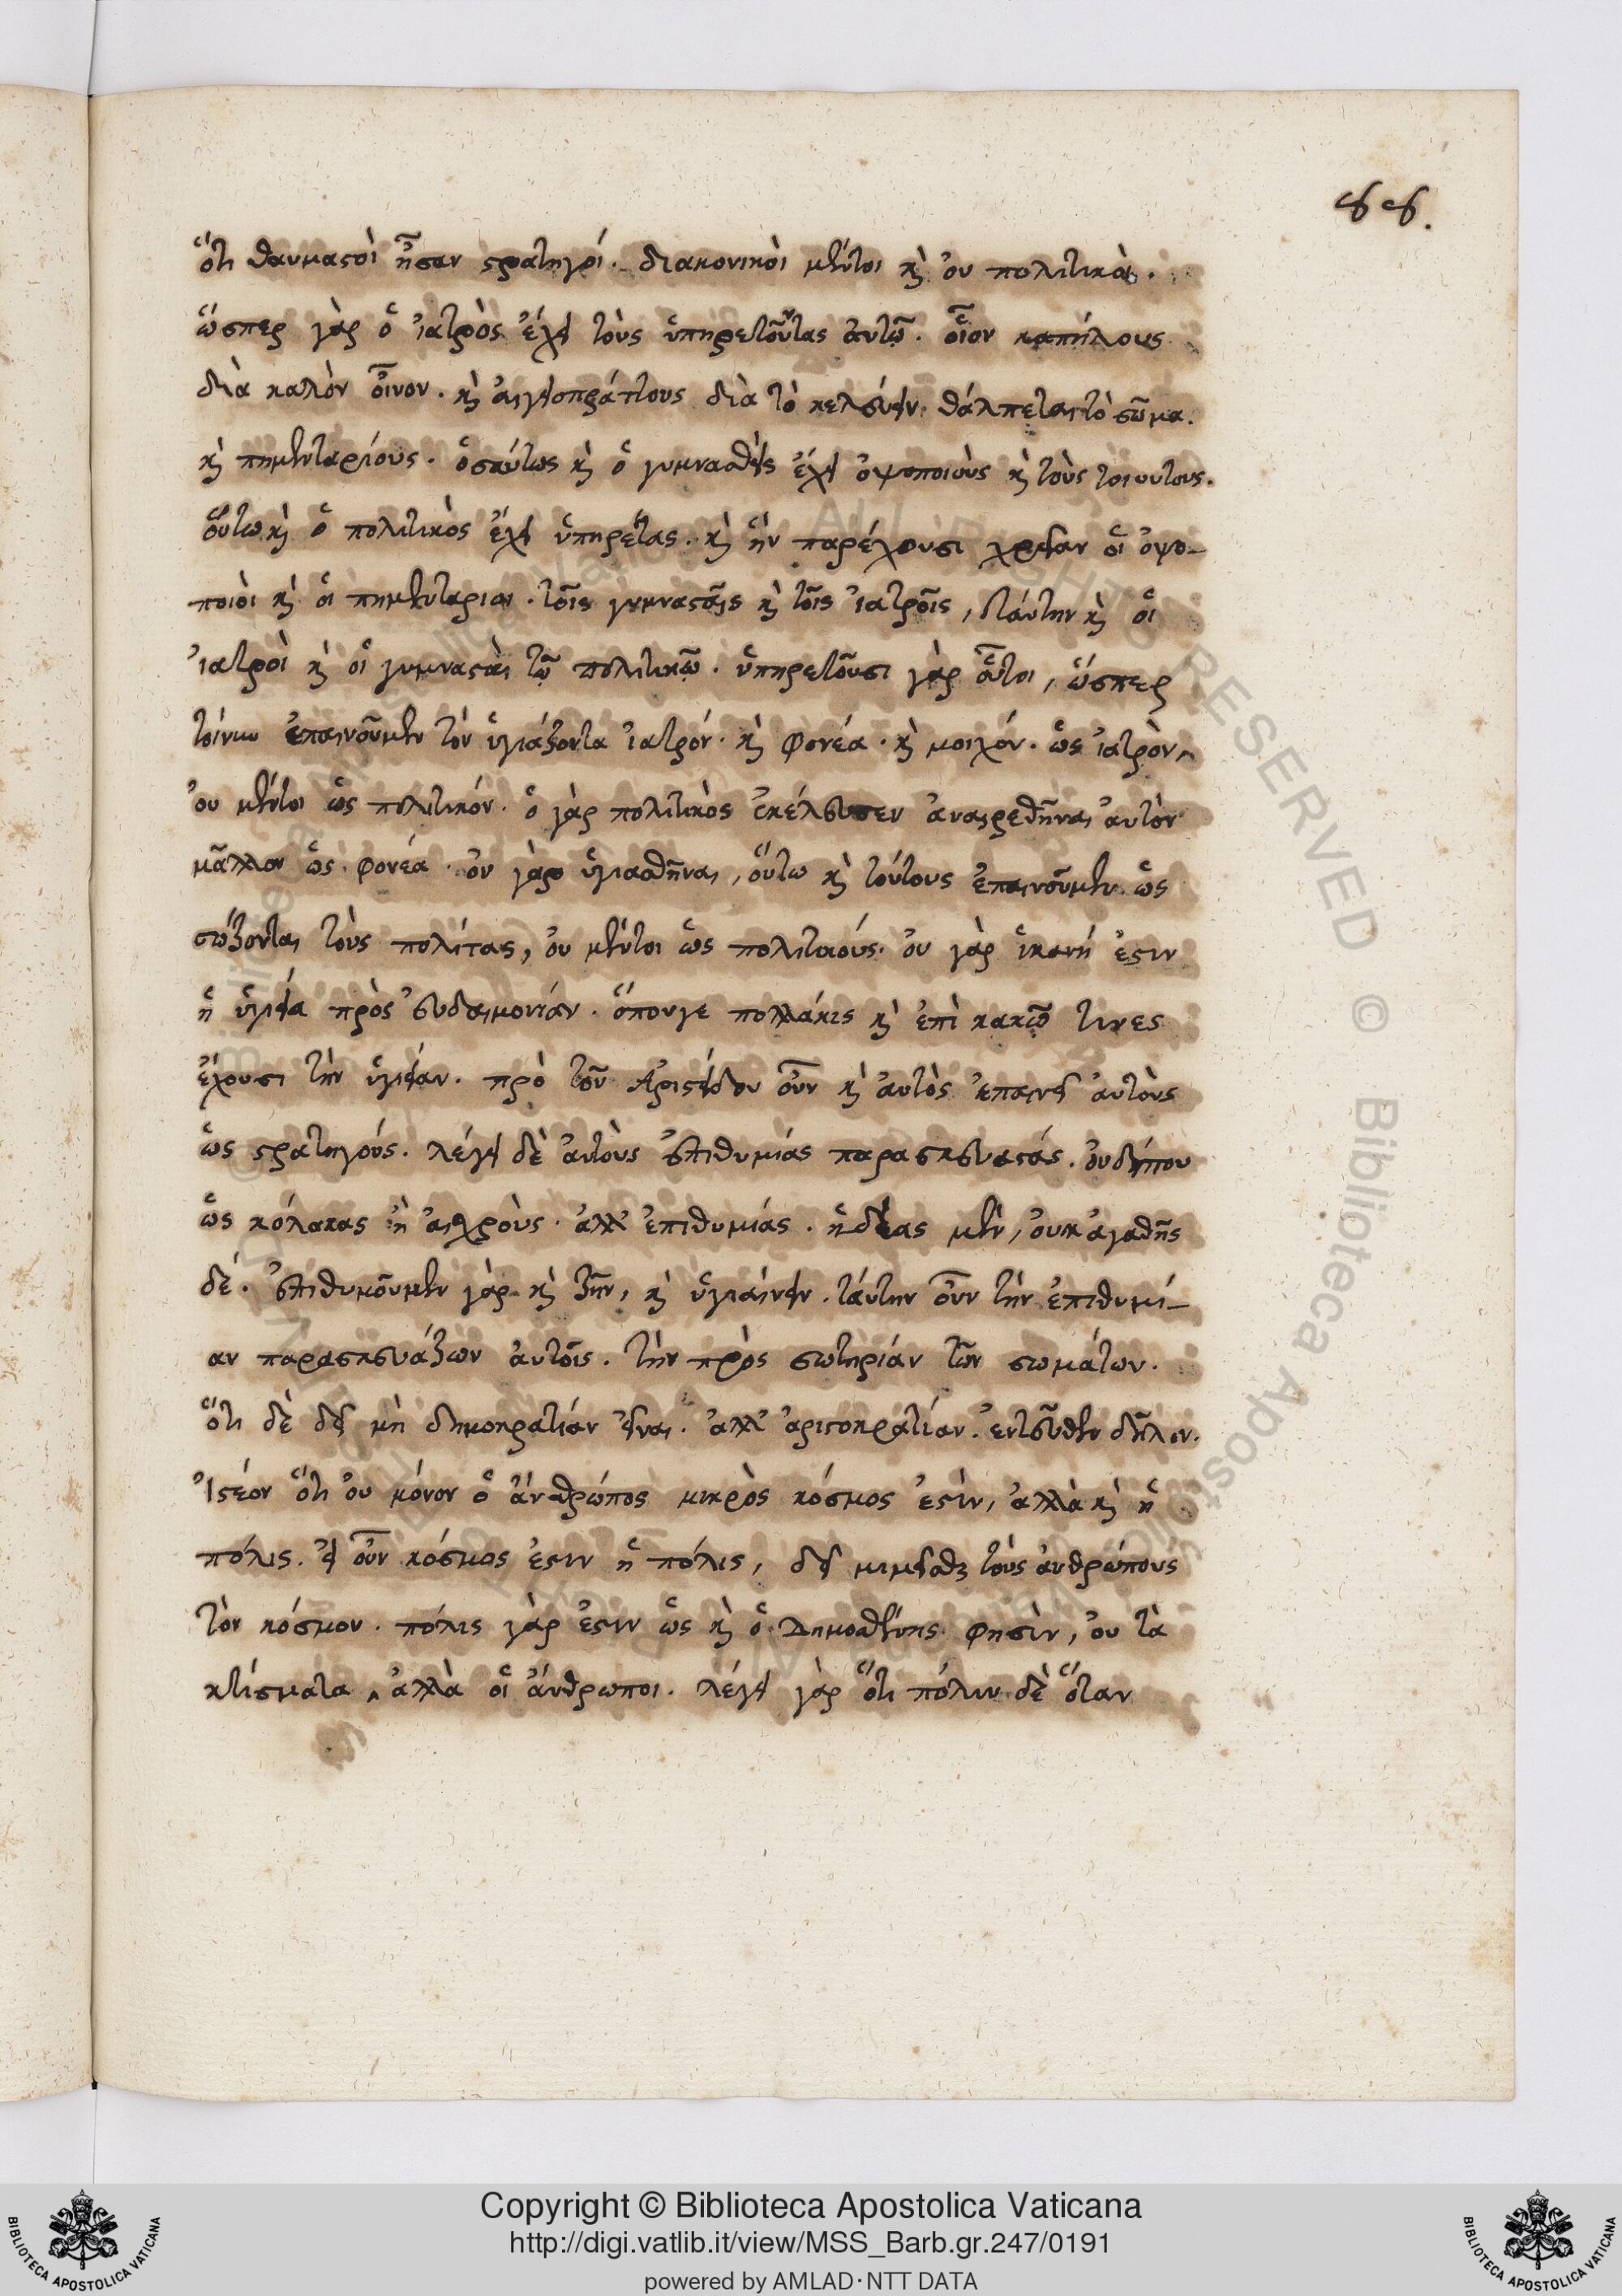 ὅτι θαυμαστοὶ ἦσαν στρατηγοί. διακονικοὶ μέντοι καὶ οὐ πολιτικοὶ.
ὥσπερ γὰρ ὁ ἰατρὸς ἔχει τοὺς ὑπηρετοῦντας αὐτῷ. οἷον καπήλους
διὰ καλὸν οἶνον. καὶ διὰ τὸ κελεύειν θάλπεται τὸ σῶμα.
καὶ πημενταρίους. ὁσαύτως καὶ ὁ ἔχει ὀψοποιοὺς καὶ τοὺς τοιούτους.
οὕτω καὶ ὁ πολιτικὸς ἔχει ὑπηρέτας. καὶ ἣν παρέχουσι χρείαν οἱ ὀψο-
ποιοὶ καὶ οἱ πημεντάριοι. τοῖς γυμνασταῖς καὶ τοῖς ἰατροῖς, ταύτην καὶ οἱ
ἰατροὶ καὶ οἱ γυμνασταὶ τῷ πολιτικῷ. ὑπηρετοῦσι γὰρ οὗτοι, ὥσπερ
τοίνυν ἐπαινοῦμεν τὸν ὑγιάζοντα ἰατρόν. καὶ φονέα. καὶ μοιχόν. ὡς ἰατρὸν,
οὐ μέντοι ὡς πολιτικόν. ὁ γὰρ πολιτικὸς ἐκέλευσεν ἀναιρεθῆναι αὐτὸν
μᾶλλον ὡς φονέα. οὐ γὰρ ὑγιασθῆναι, οὕτω καὶ τούτους ἐπαινοῦμεν ὡς
σώζοντας τοὺς πολίτας, οὐ μέντοι ὡς πολιτικούς. οὐ γὰρ ἱκανή ἐστιν
ἡ ὑγιεία πρὸς εὐδαιμονίαν. ὅπουγε πολλάκις καὶ ἐπὶ κακῷ τινες
ἔχουσι τὴν ὑγιείαν. πρὸ τοῦ Ἀριστείδου οὖν καὶ αὐτὸς ἐπαινεῖ αὐτοὺς
ὡς στρατηγούς. λέγει δὲ αὐτοὺς ἐπιθυμίας παρασκευαστάς. οὐδήπου
ὡς κόλακας ἢ αἰσχροὺς. ἀλλ' ἐπιθυμίας. ἡδείας μὲν, οὐκ ἀγαθῆς
δέ. ἐπιθυμοῦμεν γὰρ καὶ ζῆν, καὶ ὑγιαίνειν. ταύτην οὖν τὴν ἐπιθυμί-
αν παρασκευάζων αὐτοῖς. τὴν πρὸς σωτηρίαν τῶν σωμάτων.
ὅτι δὲ δεῖ μὴ δημοκρατίαν εἶναι. ἀλλ' ἀριστοκρατίαν. ἐντεῦθεν δῆλον.
Ἰστέον ὅτι οὐ μόνον ὁ ἄνθρωπος μικρὸς κόσμος ἐστὶν, ἀλλὰ καὶ ἡ
πόλις. εἰ οὖν κόσμος ἐστιν ἡ πόλις, δεῖ μιμεῖσθαι τοὺς ἀνθρώπους
τὸν κόσμον. πόλις γὰρ ἐστιν ὡς καὶ ὁ Δημοσθένης φησὶν, οὐ τὰ
κτίσματα, ἀλλὰ οἱ ἄνθρωποι. λέγει γὰρ ὅτι πόλιν δὲ ὅταν
Copyright © Biblioteca Apostolica Vaticana
http://digi.vatlib.it/view/MSS_Barb.gr.247/0191
powered by AMLAD·NTT DATA